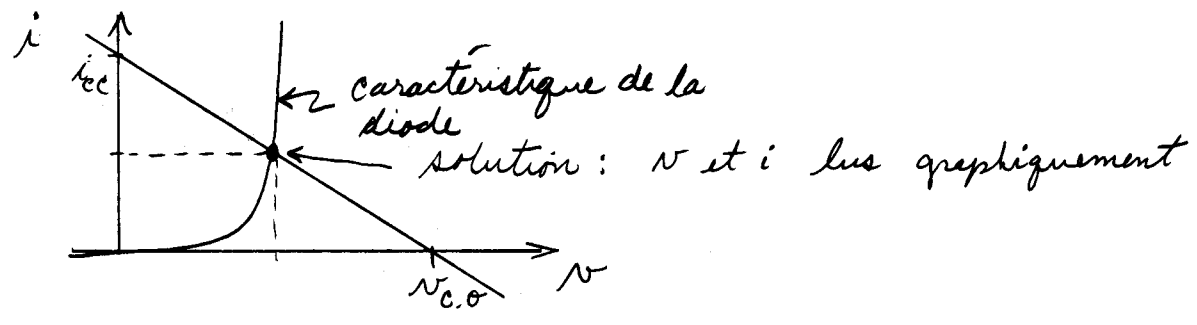 i
i_cc
caractéristique de la
diode
solution : v et i lus graphiquement
v_c.o
v